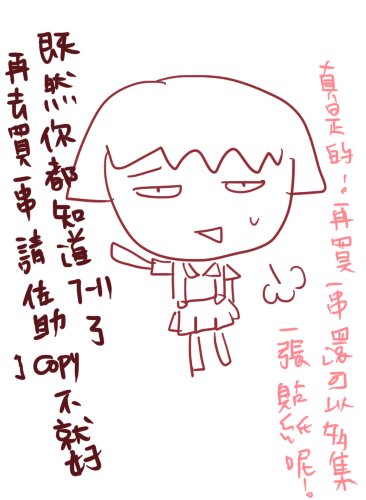 既然你都知道7-11了
再去買一串請佐助copy不就好
了
真是的！再買一串還可以多集
一張貼紙呢！